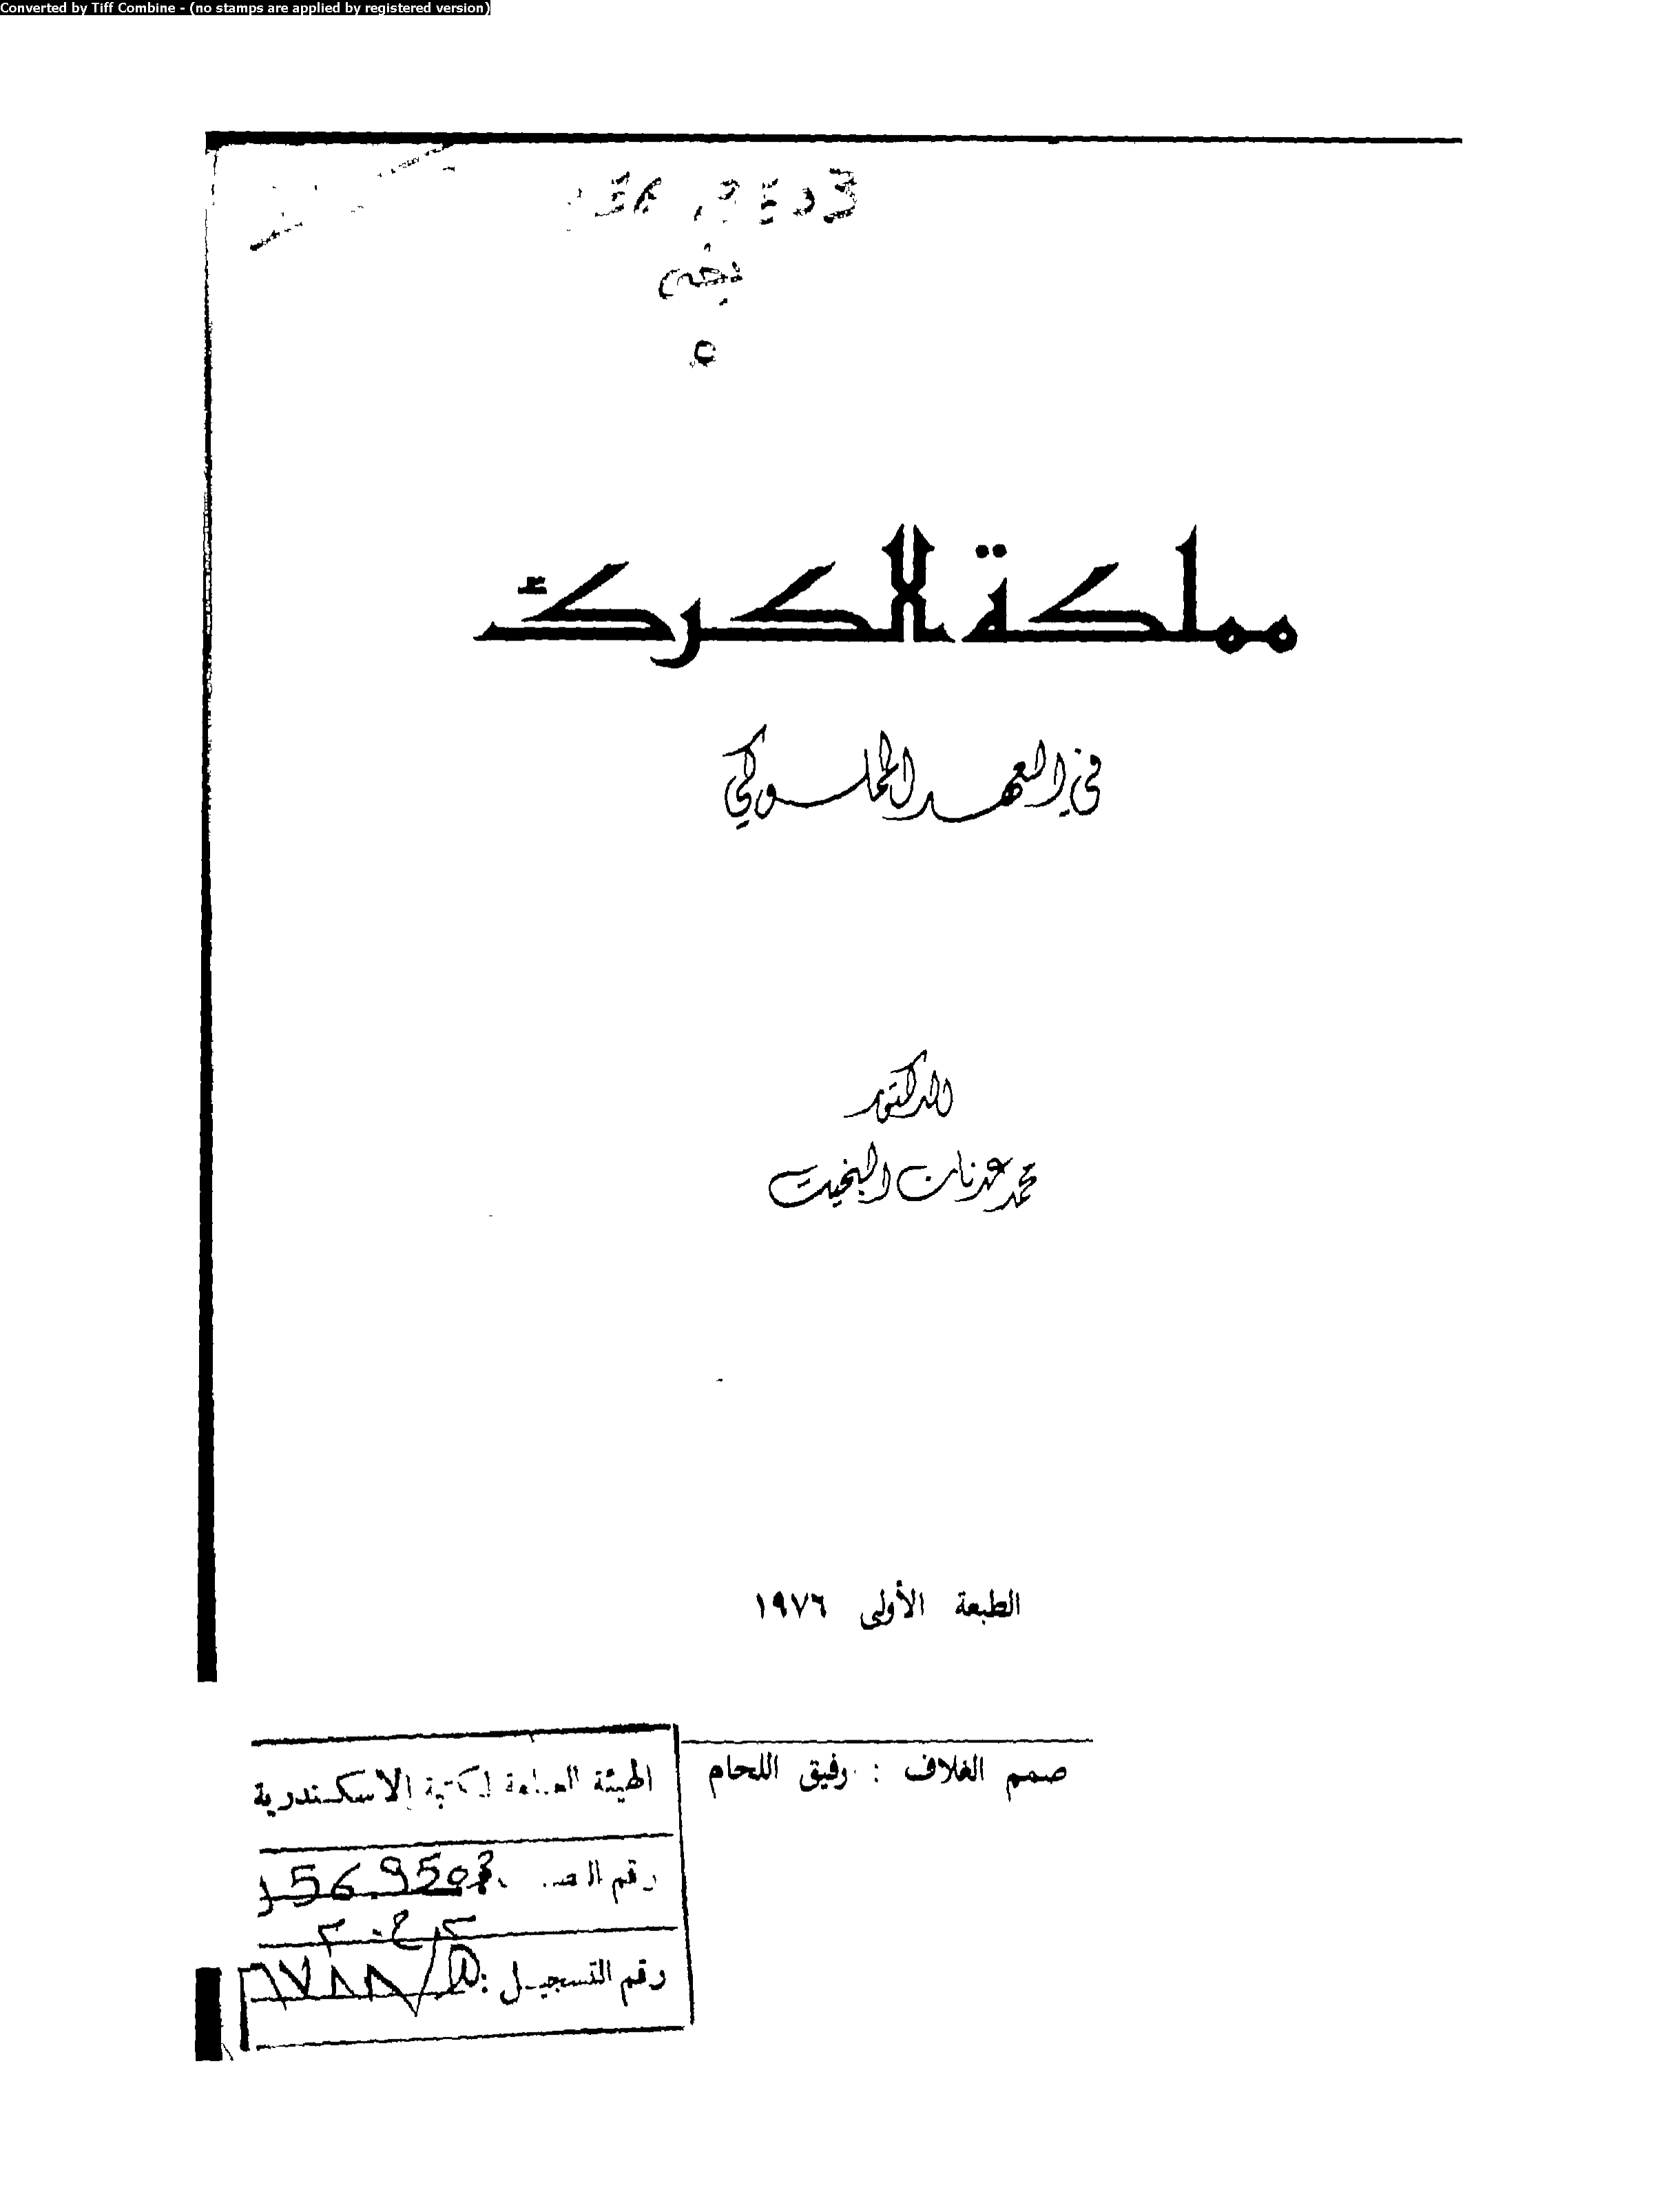 Converted by Tiff Combine - (no stamps are applied by registered version)
مملكة الكرك
في العهد المملوكي
الدكتور
محمد عدنان البخيت
الطبعة الأولى ١٩٧٦
صمم الغلاف : رفيق اللحام
الهيئة العامة لمكتبة الاسكندرية
رقم 956.9503
رقم التسجيل :